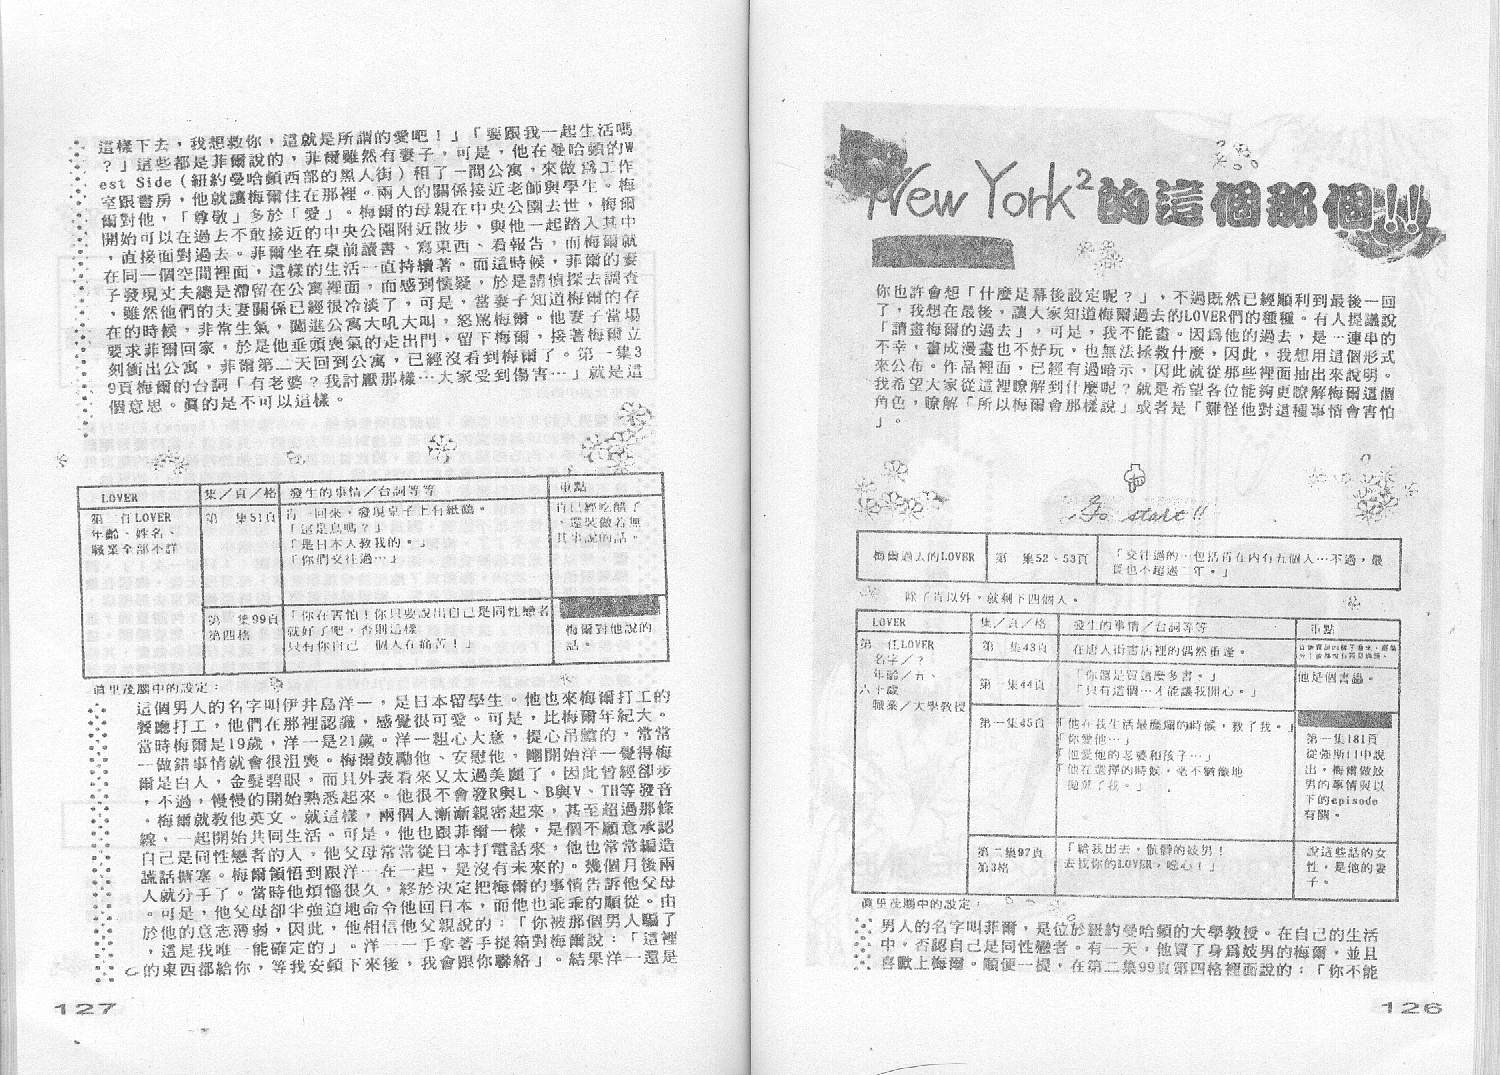 New York²的這個那個!!
你也許會想「什麼是幕後設定呢？」，不過既然已經順利到最後一回
了，我想在最後，讓人家知道梅爾過去的LOVER們的種種。有人提議說
「請畫梅爾的過去」，可是，我不能畫。因為他的過去，是一連串的
不幸，畫成漫畫也不好玩，也無法拯救什麼，因此，我想用這個形式
來公布。作品裡面，已經有過暗示，因此就從那些裡面抽出來說明。
我希望大家從這裡瞭解到什麼呢？就是希望各位能夠更瞭解梅爾這個
角色，瞭解「所以梅爾會那樣說」或者是「難怪他對這種事情會害怕
」。
Go start!!
梅爾過去的LOVER
第一集52、53頁
「交往過的…包括肯在內有五個人…不過，最
長也不超過二年。」
除了肯以外，就剩下四個人。
LOVER
集／頁／格
發生的事情／台詞等等
重點
第一任LOVER
名字／？
年齡／五、
六十歲
職業／大學教授
第一集43頁
在唐人街書店裡的偶然重逢。
第一集44頁
「你還是買這麼多書。」
「只有這個…才能讓我開心。」
他是個書蟲。
第一集45頁
「他在我生活最糜爛的時候，救了我。」
「你愛他…」
「他愛他的老婆和孩子…」
「他在選擇的時候，毫不猶豫地
拋棄了我。」
第一集181頁
從強斯口中說
出，梅爾做妓
男的事情與以
下的episode
有關。
第二集97頁
第3格
「給我出去，骯髒的妓男！
去找你的LOVER，噁心！」
說這些話的女
性，是他的妻
子。
真里茂腦中的設定：
男人的名字叫菲爾，是位於紐約曼哈頓的大學教授。在自己的生活
中，否認自己是同性戀者。有一天，他買了身為妓男的梅爾，並且
喜歡上梅爾。順便一提，在第二集99頁第四格裡面說的：「你不能
126
這樣下去，我想救你，這就是所謂的愛吧！」「要跟我一起生活嗎
？」這些都是菲爾說的，菲爾雖然有妻子，可是，他在曼哈頓的W
est Side（紐約曼哈頓西部的黑人街）租了一間公寓，來做為工作
室跟書房，他就讓梅爾住在那裡。兩人的關係接近老師與學生。梅
爾對他，「尊敬」多於「愛」。梅爾的母親在中央公園去世，梅爾
開始可以在過去不敢接近的中央公園附近散步，與他一起踏入其中
，直接面對過去。菲爾坐在桌前讀書、寫東西、看報告，而梅爾就
在同一個空間裡面，這樣的生活一直持續著。而這時候，菲爾的妻
子發現丈夫總是滯留在公寓裡面，而感到懷疑，於是請偵探去調查
，雖然他們的夫妻關係已經很冷淡了，可是，當妻子知道梅爾的存
在的時候，非常生氣，闖進公寓大吼大叫，怒罵梅爾。他妻子當場
要求菲爾回家，於是他垂頭喪氣的走出門，留下梅爾，接著梅爾立
刻衝出公寓，菲爾第二天回到公寓，已經沒看到梅爾了。第一集3
9頁梅爾的台詞「有老婆？我討厭那樣…大家受到傷害…」就是這
個意思。真的是不可以這樣。
LOVER
集／頁／格
發生的事情／台詞等等
重點
第二任LOVER
年齡、姓名、
職業全部不詳
第一集51頁
肯一回來，發現桌子上有紙鶴。
「這是鳥嗎？」
「是日本人教我的。」
「你們交往過…」
肯已經吃醋了
，還裝做若無
其事說的話。
第二集99頁
第四格
「你在害怕！你只要說出自己是同性戀者
就好了吧，否則這樣
只有你自己一個人在痛苦！」
梅爾對他說的
話。
真里茂腦中的設定：
這個男人的名字叫伊井島洋一，是日本留學生。他也來梅爾打工的
餐廳打工，他們在那裡認識，感覺很可愛。可是，比梅爾年紀大。
當時梅爾是19歲，洋一是21歲。洋一粗心大意，提心吊膽的，常常
一做錯事情就會很沮喪。梅爾鼓勵他、安慰他，剛開始洋一覺得梅
爾是白人，金髮碧眼，而且外表看來又太過美麗了，因此曾經卻步
，不過，慢慢的開始熟悉起來。他很不會發R與L、B與V、TH等發音
。梅爾就教他英文。就這樣，兩個人漸漸親密起來，甚至超過那條
線，一起開始共同生活。可是，他也跟菲爾一樣，是個不願意承認
自己是同性戀者的人，他父母常常從日本打電話來，他也常常編造
謊話搪塞。梅爾領悟到跟洋一在一起，是沒有未來的。幾個月後兩
人就分手了。當時他煩惱很久，終於決定把梅爾的事情告訴他父母
。可是，他父母卻半強迫地命令他回日本，而他也乖乖的順從。由
於他的意志薄弱，因此，他相信他父親說的：「你被那個男人騙了
，這是我唯一能確定的」。洋一一手拿著手提箱對梅爾說：「這裡
的東西都給你，等我安頓下來後，我會跟你聯絡」。結果洋一還是
127